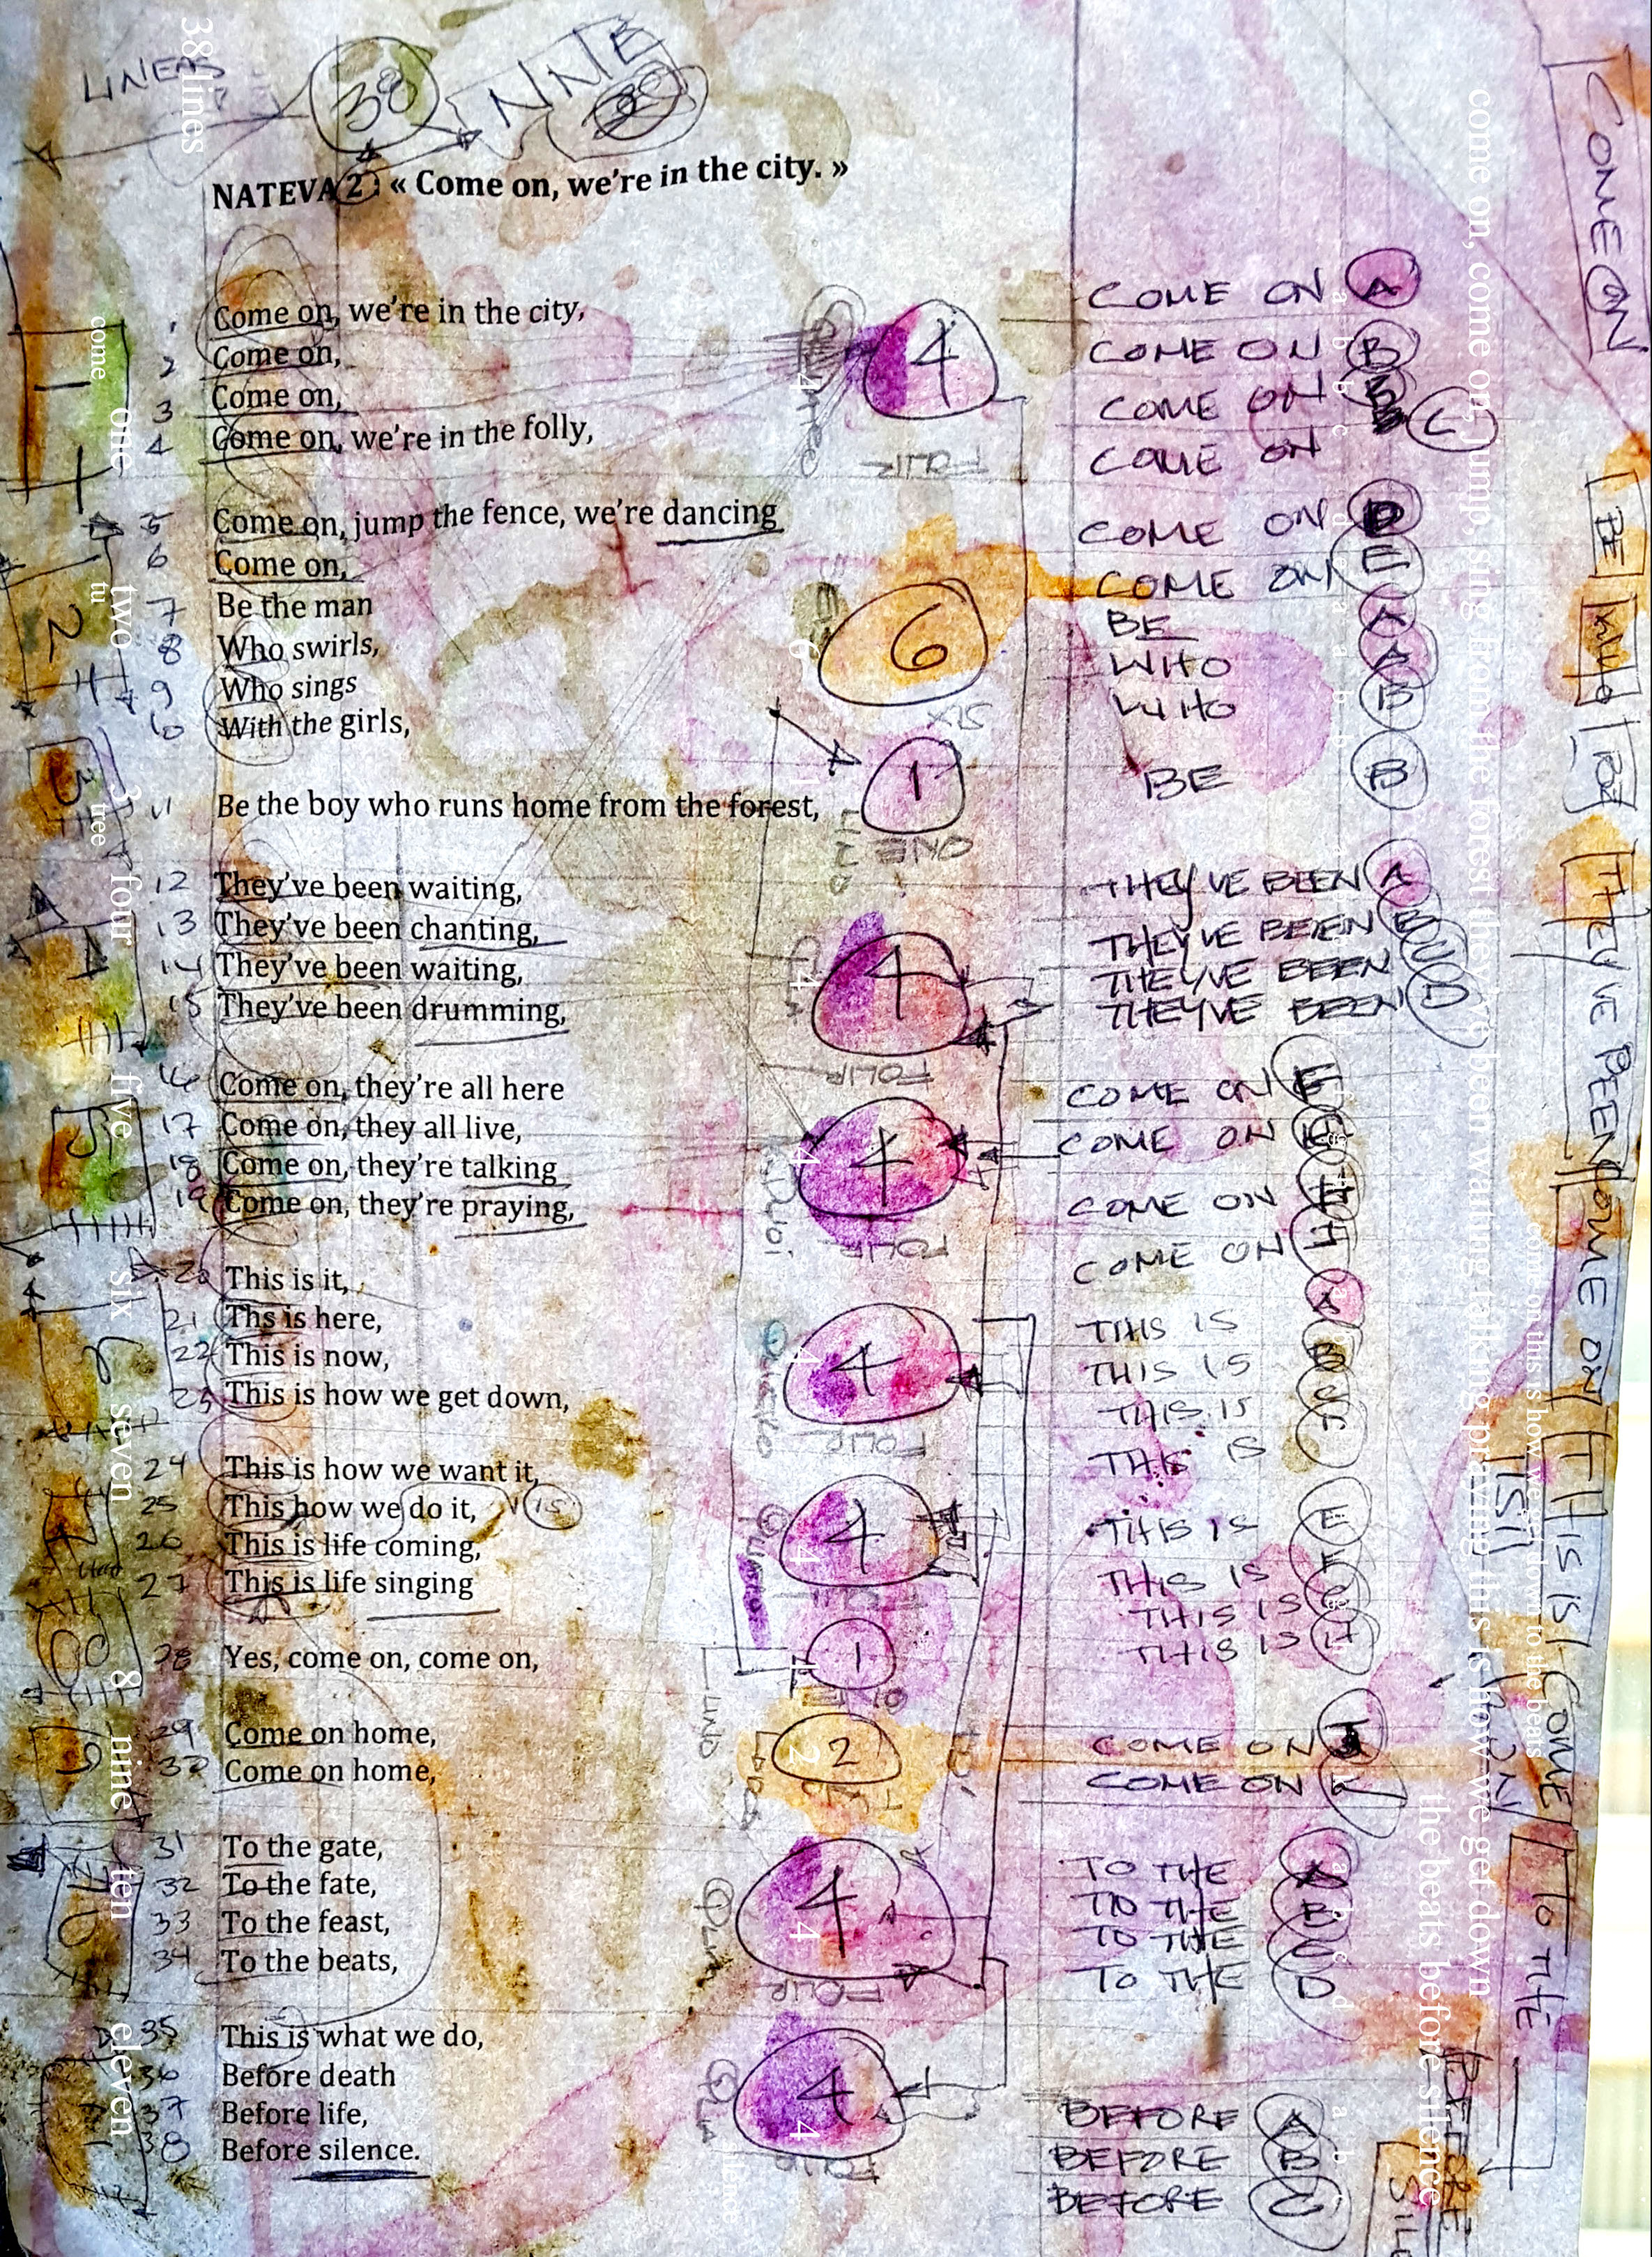 LINEAS
38 lines
38
NINE
NATEVA 2) « Come on, we're in the city. »
1 Come on, we're in the city,
2 Come on,
3 Come on,
4 Come on, we're in the folly,
5 Come on, jump the fence, we're dancing
6 Come on,
7 Be the man
8 Who swirls,
9 Who sings
10 With the girls,
11 Be the boy who runs home from the forest,
12 They've been waiting,
13 They've been chanting,
14 They've been waiting,
15 They've been drumming,
16 Come on, they're all here
17 Come on, they all live,
18 Come on, they're talking
19 Come on, they're praying,
20 This is it,
21 Ths is here,
22 This is now,
23 This is how we get down,
24 This is how we want it,
25 This how we do it, V IS
26 This is life coming,
27 This is life singing
28 Yes, come on, come on,
29 Come on home,
30 Come on home,
31 To the gate,
32 To the fate,
33 To the feast,
34 To the beats,
35 This is what we do,
36 Before death
37 Before life,
38 Before silence.
1
2
3
4
5
6
7
8
9
10
come
one
two
tu
3
tree
four
five
six
seven
8
nine
ten
eleven
4
FOUR
6
SIX
1
ONE
4
FOUR
4
FOUR
4
FOUR
4
1
UNO
2
4
FOUR
4
FOUR
COME ON A
COME ON B
COME ON B C
COME ON
COME ON D
COME ON E
BE A
WHO A
WHO B
BE B
THEY'VE BEEN A
THEY'VE BEEN B
THEYVE BEEN C
THEYVE BEEN D
COME ON F
COME ON G
COME ON H
COME ON H
THIS IS A
THIS IS B
THIS IS C
THIS IS
THIS IS E
THIS IS F
THIS IS G
THIS IS H
COME ON
COME ON K
TO THE A
TO THE B
TO THE C
TO THE D
BEFORE A
BEFORE B
BEFORE C
come on, come on, jump, sing, home, the forest they've been wanning, talking, praying, this is how we get down
come on, this is how we get down to the beats
the beats, before silence
COME ON
BE
WHO
THEY'VE BEEN
COME ON
THIS IS
COME ON
TO THE
BEFORE